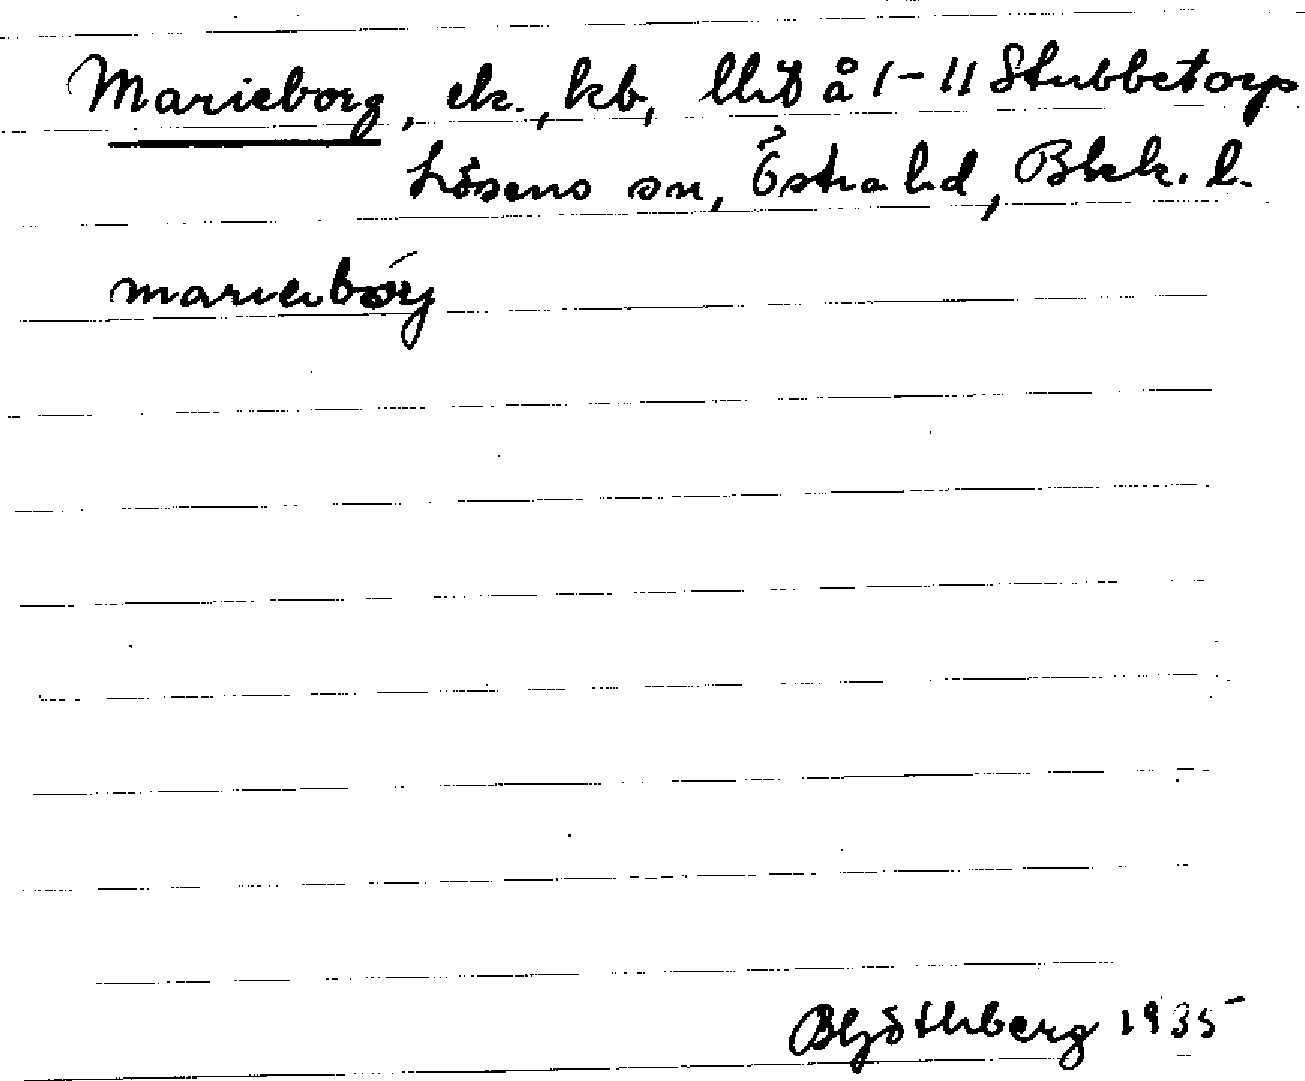 Marieborg, ek., kb, lht å 1-11 Stubbetorp
Lösens sn, Östra hd, Blek. l.
marieborg
B Göthberg 1935